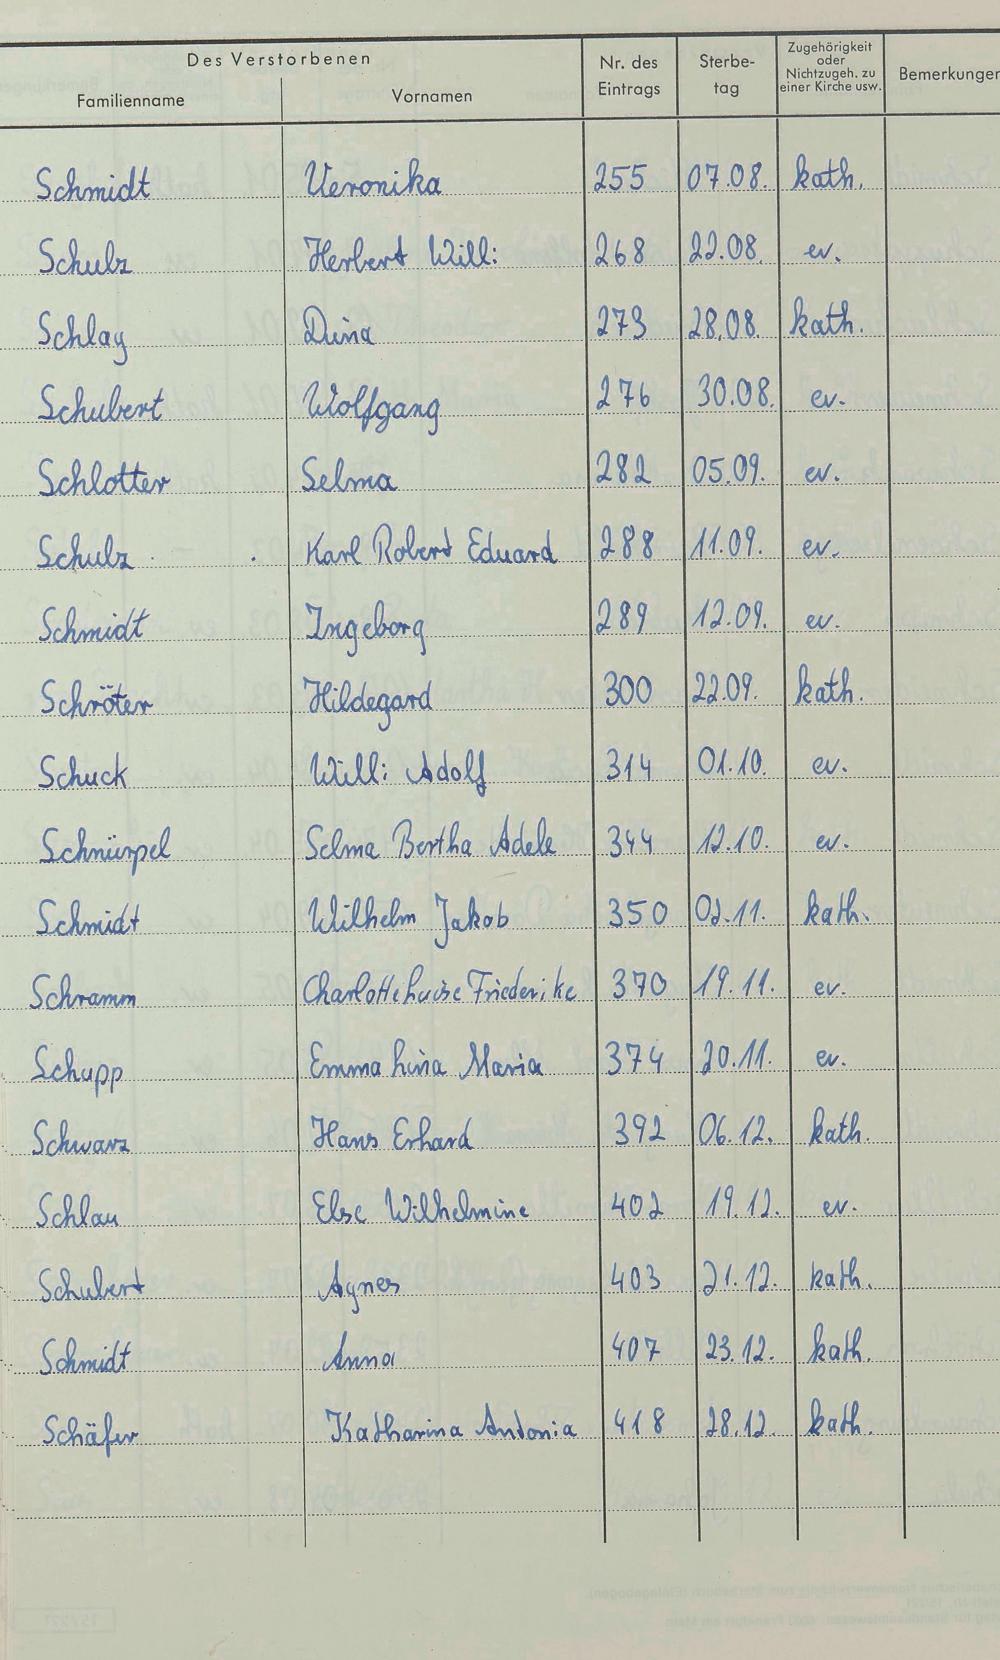 Des Verstorbenen
Familienname Vornamen Nr. des Eintrags Sterbe-tag Zugehörigkeit oder Nichtzugeh. zu einer Kirche usw. Bemerkungen
Schmidt Veronika 255 07.08. kath.
Schulz Herbert Willi 268 22.08. ev.
Schlag Dina 273 28.08. kath.
Schubert Wolfgang 276 30.08. ev.
Schlotter Selma 282 05.09. ev.
Schulz Karl Robert Eduard 288 11.09. ev.
Schmidt Ingeborg 289 12.09. ev.
Schröter Hildegard 300 22.09. kath.
Schuck Willi Adolf 314 01.10. ev.
Schnürpel Selma Bertha Adele 344 12.10. ev.
Schmidt Wilhelm Jakob 350 02.11. kath.
Schramm Charlotte Luise Friederike 370 19.11. ev.
Schupp Emma Lina Maria 374 20.11. ev.
Schwarz Hans Erhard 392 06.12. kath.
Schlau Else Wilhelmine 402 19.12. ev.
Schubert Agnes 403 21.12. kath.
Schmidt Anna 407 23.12. kath.
Schäfer Katharina Antonia 418 28.12. kath.